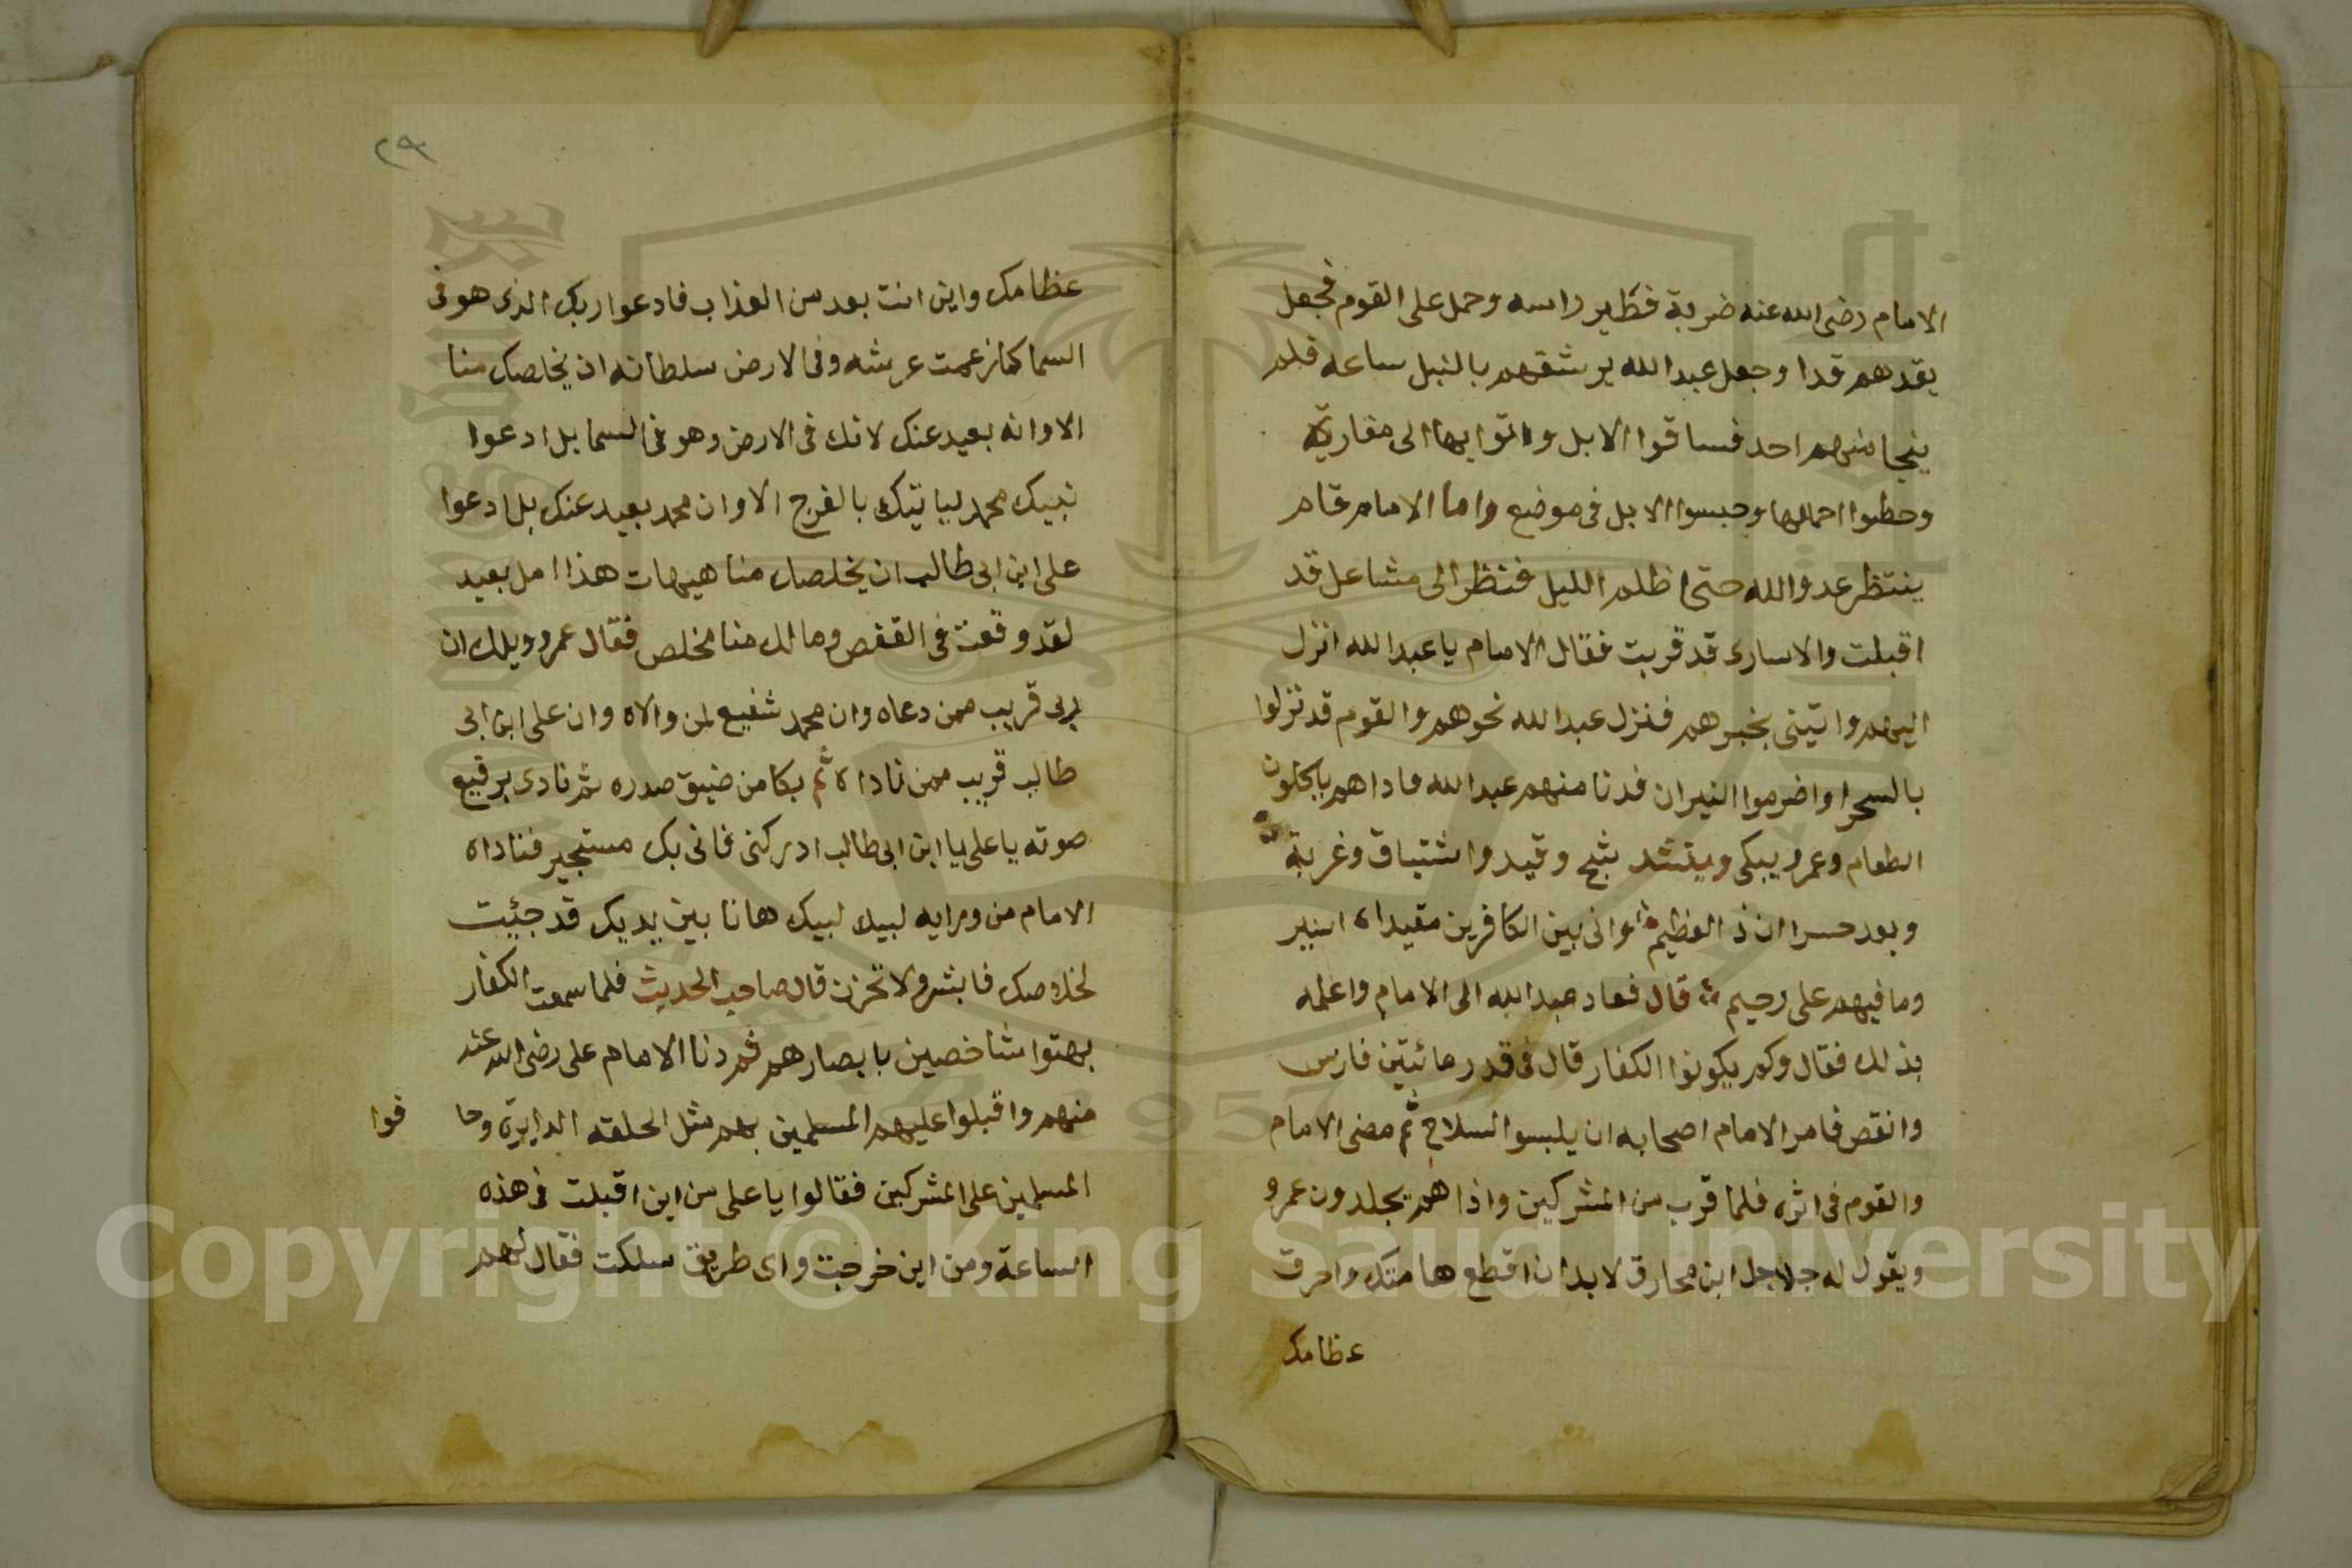 الامام رضى الله عنه ضربة فطير راسه وحمل على القوم فجعل
يقدهم قدا وجعل عبد الله يرشقهم بالنبل ساعه فلم
ينجا منهم احد فساقوا الابل واتوا بها الى
وحطوا احمالها وحبسوا الابل فى موضع واما الامام قام
ينتظر عدو الله حتى اظلم الليل فنظر الى مشاعل قد
اقبلت والاسارى قد قربت فقال الامام يا عبد الله انزل
اليهم واتينى بخبرهم فنزل عبد الله نحوهم والقوم قد نزلوا
بالسحرا واضرموا النيران فدنا منهم عبد الله فاداهم ياكلون
الطعام وعمرو يبكى وينشد وقيد واشتياق وغربة
وبعد حسرا ان ذ العظيم وانى بين الكافرين مقيدا اسير
وما فيهم على رحيم قال فعاد عبد الله الى الامام واعلمه
بذلك فقال وكم يكونوا الكفار قال فى قدر مائيتين فارس
وانقص فامر الامام اصحابه ان يلبسو السلاح ثم مضى الامام
والقوم فى اثره فلما قرب من المشركين واذا هم يجلدون عمرو
ويقول له جلاجل ابن مخارق لابد ان اقطع هامتك واحرق
عظامك
٢٩
عظامك واين انت بعد من العذاب فادعوا ربك الذى هو فى
السما كما زعمت عرشه وفى الارض سلطانه ان يخلصك منا
الا وانه بعيد عنك لانك فى الارض وهو فى السما بل ادعوا
نبيك محمد لياتيك بالفرج الا وان محمد بعيد عنك بل ادعوا
على ابن ابى طالب ان يخلصك منا هيهات هذا امل بعيد
لقد وقعت فى القفص وما لك منا مخلص فقال عمرو ويلك ان
ربى قريب ممن دعاه وان محمد شفيع لمن والاه وان على ابن ابى
طالب قريب ممن ناداه ثم بكا من ضيق صدره ثم نادى برفيع
صوته يا على يا ابن ابى طالب ادركنى فانى بك مستجير فناداه
الامام من ورايه لبيك لبيك هانا بين يديك قد جئيت
لخلاصك فابشر ولا تحزن قال صاحب الحديث فلما سمعت الكفار
بهتوا شاخصين بابصارهم ثم دنا الامام على رضى الله عنه
منهم واقبلوا عليهم المسلمين بهم مثل الحلقه الدايرة وحا فوا
المسلمين على المشركين فقالوا يا على من اين اقبلت فى هذه
الساعة ومن اين خرجت واى طريق سلكت فقال لهم
Copyright © King Saud University
1957